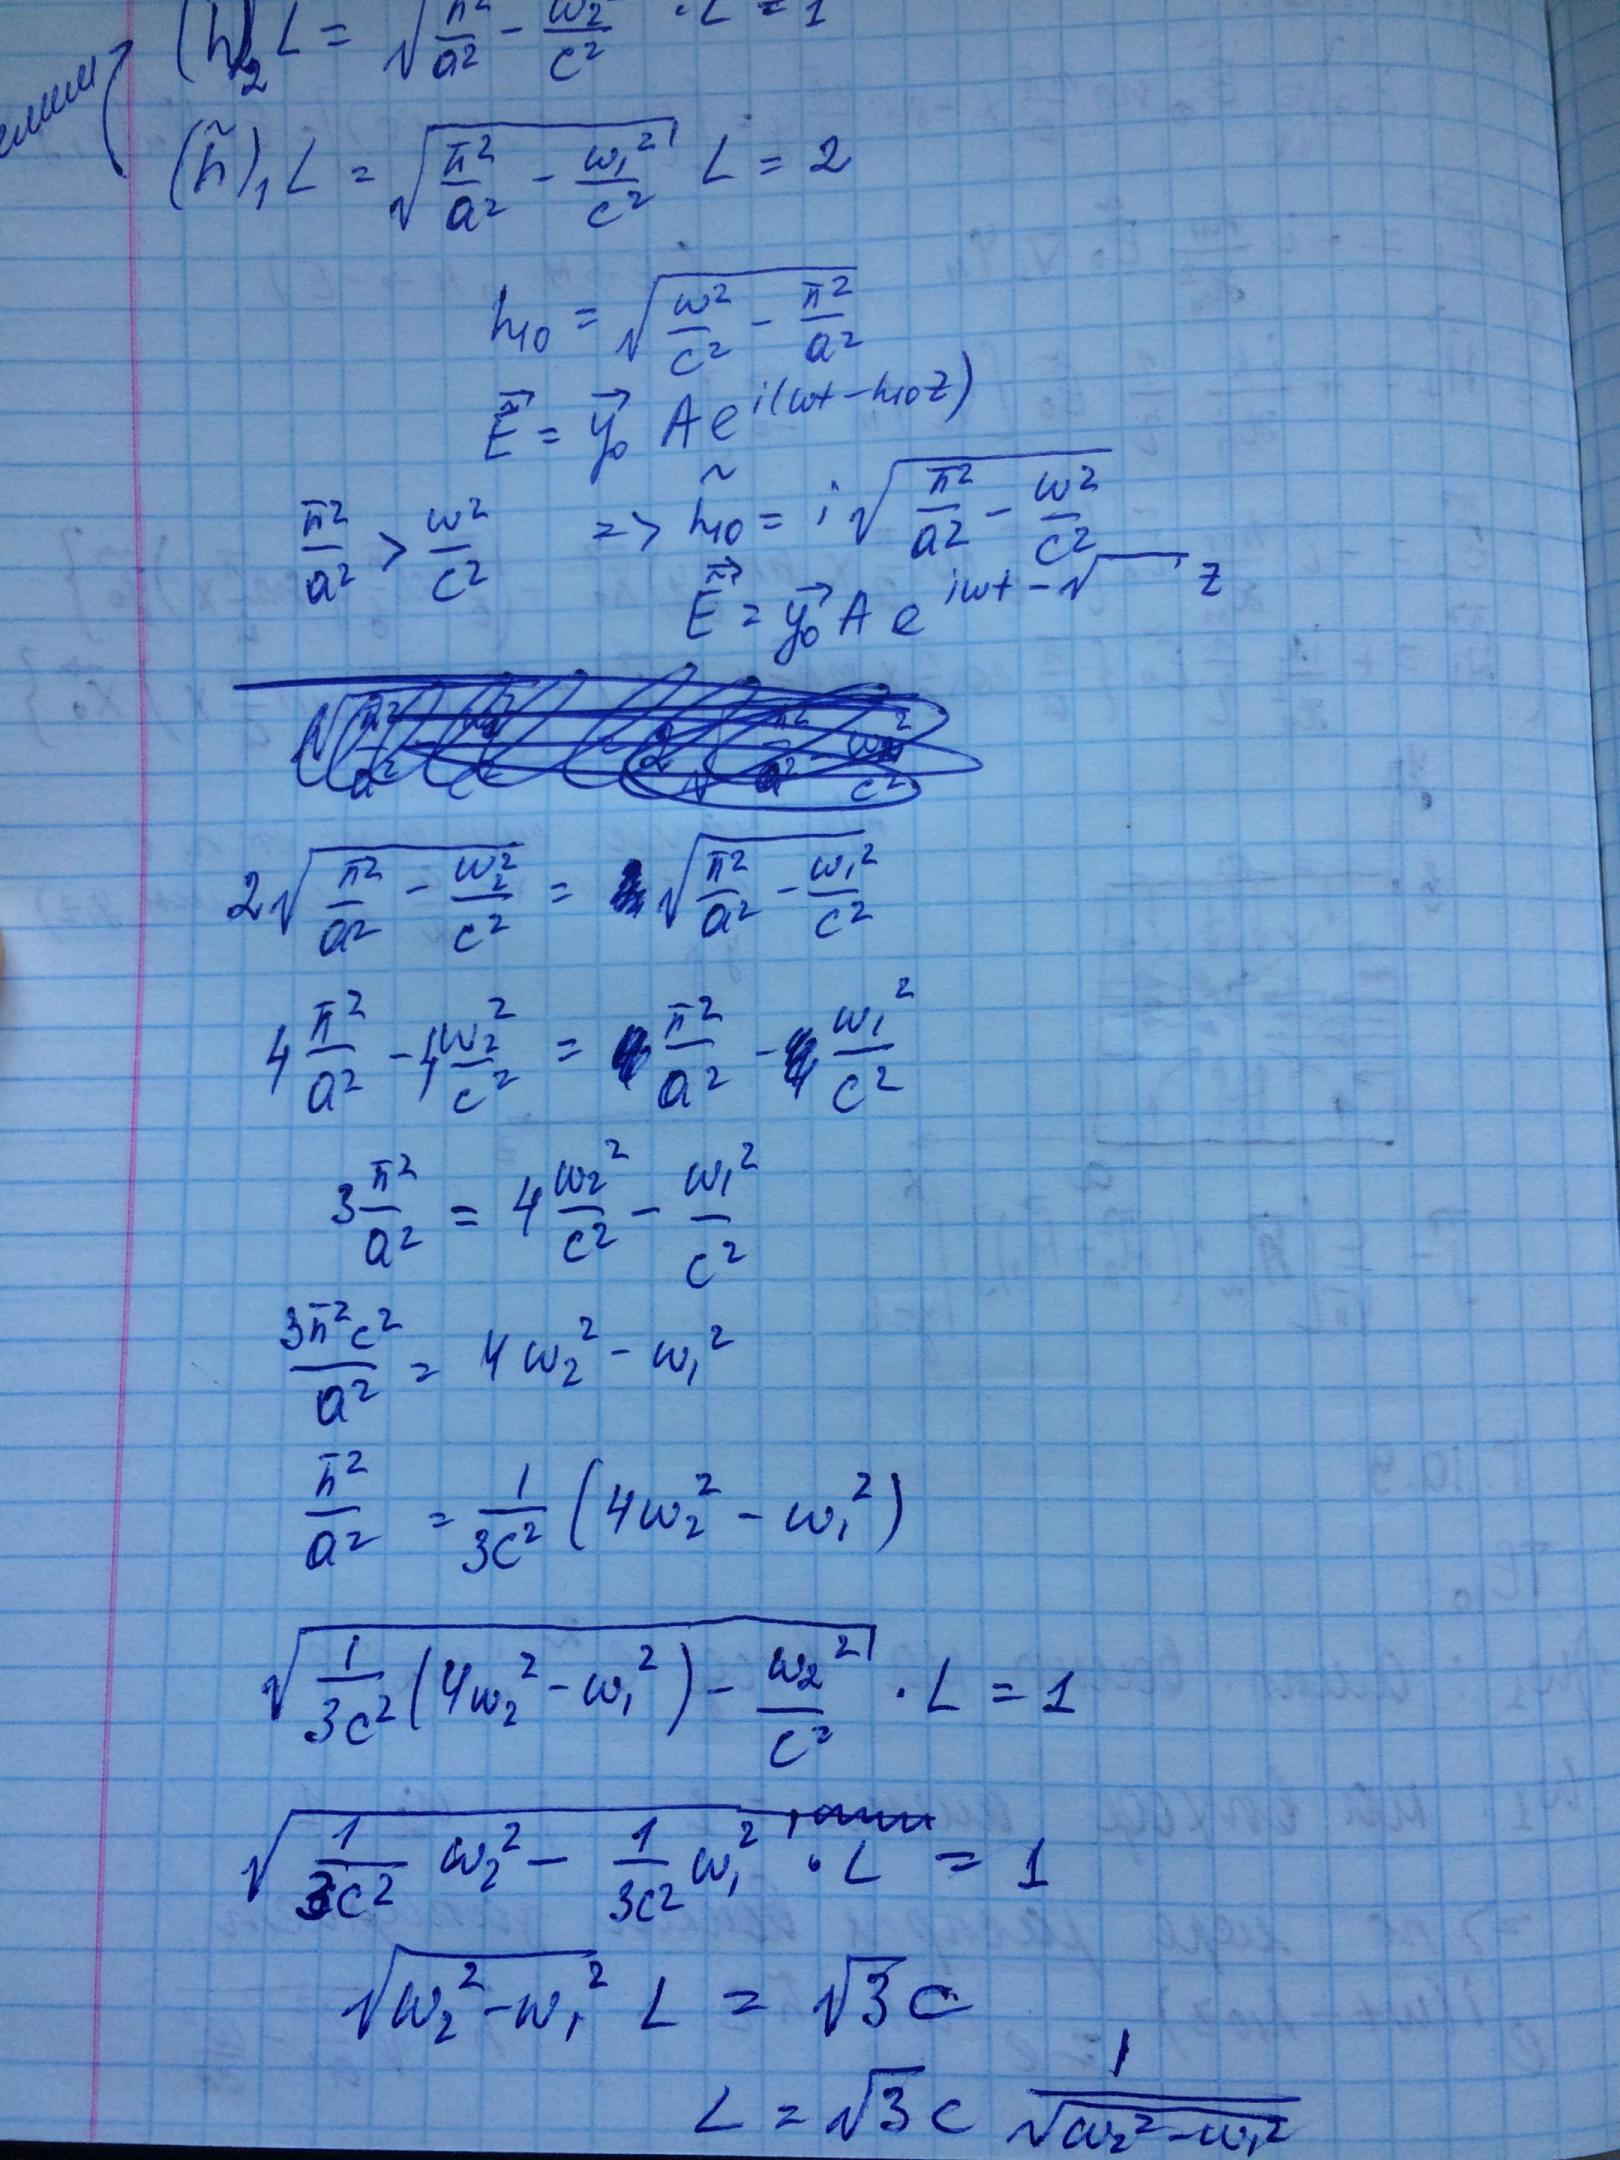 (h̃)₂ L = √(π²/a² - ω₂²/c²) · L = 1
(h̃)₁ L = √(π²/a² - ω₁²/c²) L = 2
h₁₀ = √(ω²/c² - π²/a²)
E⃗ = y⃗₀ A e^{i(ωt - h₁₀z)}
π²/a² > ω²/c² => h̃₁₀ = i √(π²/a² - ω²/c²)
E⃗ = y⃗₀ A e^{iωt - √ z}
2√(π²/a² - ω₂²/c²) = √(π²/a² - ω₁²/c²)
4 π²/a² - 4 ω₂²/c² = π²/a² - ω₁²/c²
3 π²/a² = 4 ω₂²/c² - ω₁²/c²
3π²c²/a² = 4ω₂² - ω₁²
π²/a² = 1/3c² (4ω₂² - ω₁²)
√(1/3c² (4ω₂² - ω₁²) - ω₂²/c²) · L = 1
√(1/3c² ω₂² - 1/3c² ω₁²) · L = 1
√(ω₂² - ω₁²) L = √3 c
L = √3 c 1/√(ω₂² - ω₁²)